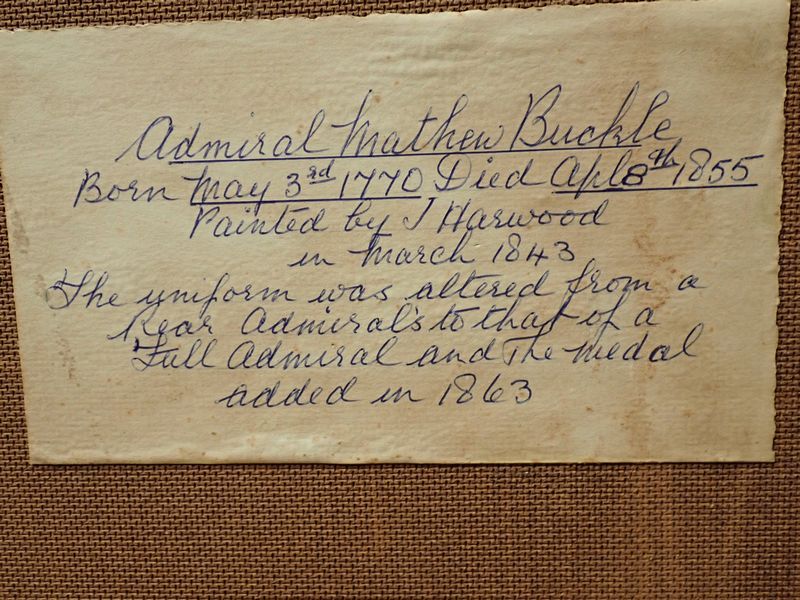 Admiral Mathew Buckle
Born May 3rd 1770 Died Apl 8th 1855
Painted by J Harwood
in March 1843
The uniform was altered from a
Rear Admiral's to that of a
Full Admiral and The medal
added in 1863